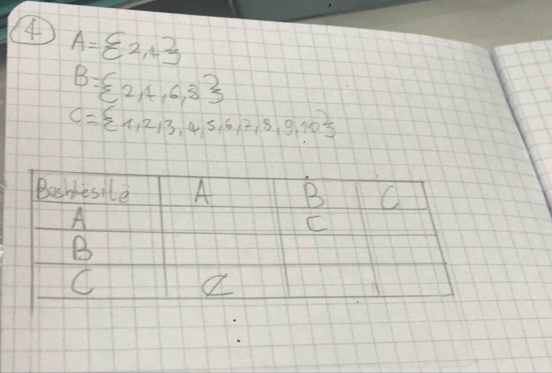 4
A={2,4}
B={2,4,6,8}
C={1,2,3,4,5,6,7,8,9,10}
Bashkësitë A B C
A ⊂
B
C ⊄